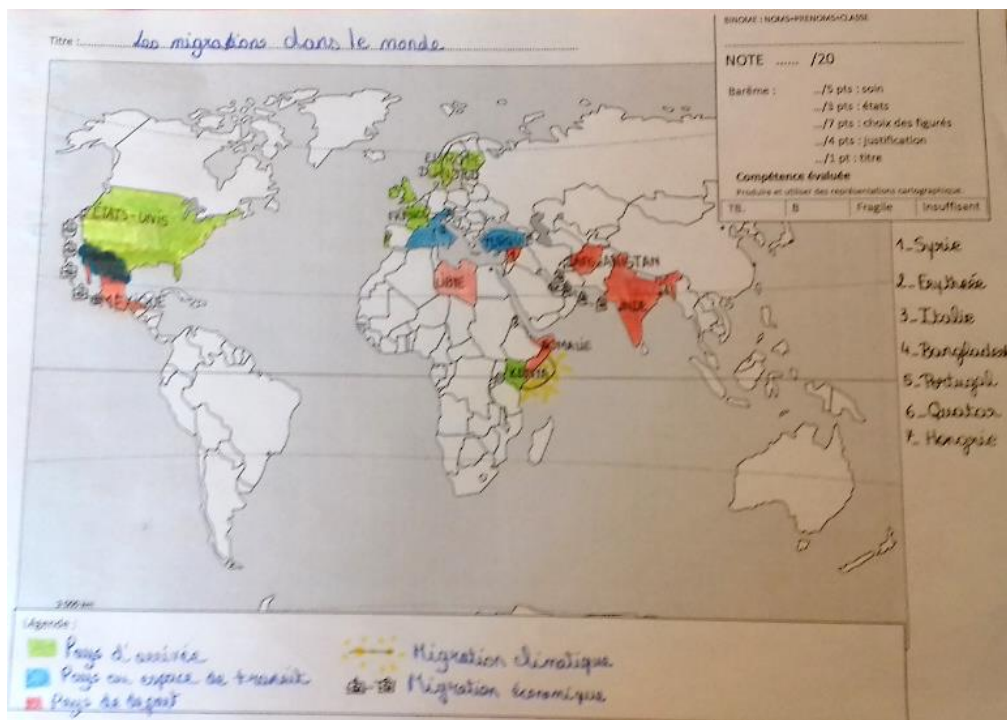 BINOME : NOMS+PRENOMS+CLASSE
Titre : Les migrations dans le monde
NOTE ...... /20
Barème :
.../5 pts : soin
.../3 pts : états
.../7 pts : choix des figurés
.../4 pts : justification
.../1 pt : titre
Compétence évaluée
Produire et utiliser des représentations cartographique
TB. B Fragile Insuffisant
ETATS-UNIS
MEXIQUE
FRANCE
TURQUIE
LIBIE
AFGHANISTAN
INDE
SOMALIE
KENYA
1_Syrie
2_Erythrée
3_Italie
4_Bangladesh
5_Portugal
6_Quatar
7_Hongrie
Légende :
Pays d'arrivée
Pays ou espace de transit
Pays de départ
Migration climatique
Migration économique